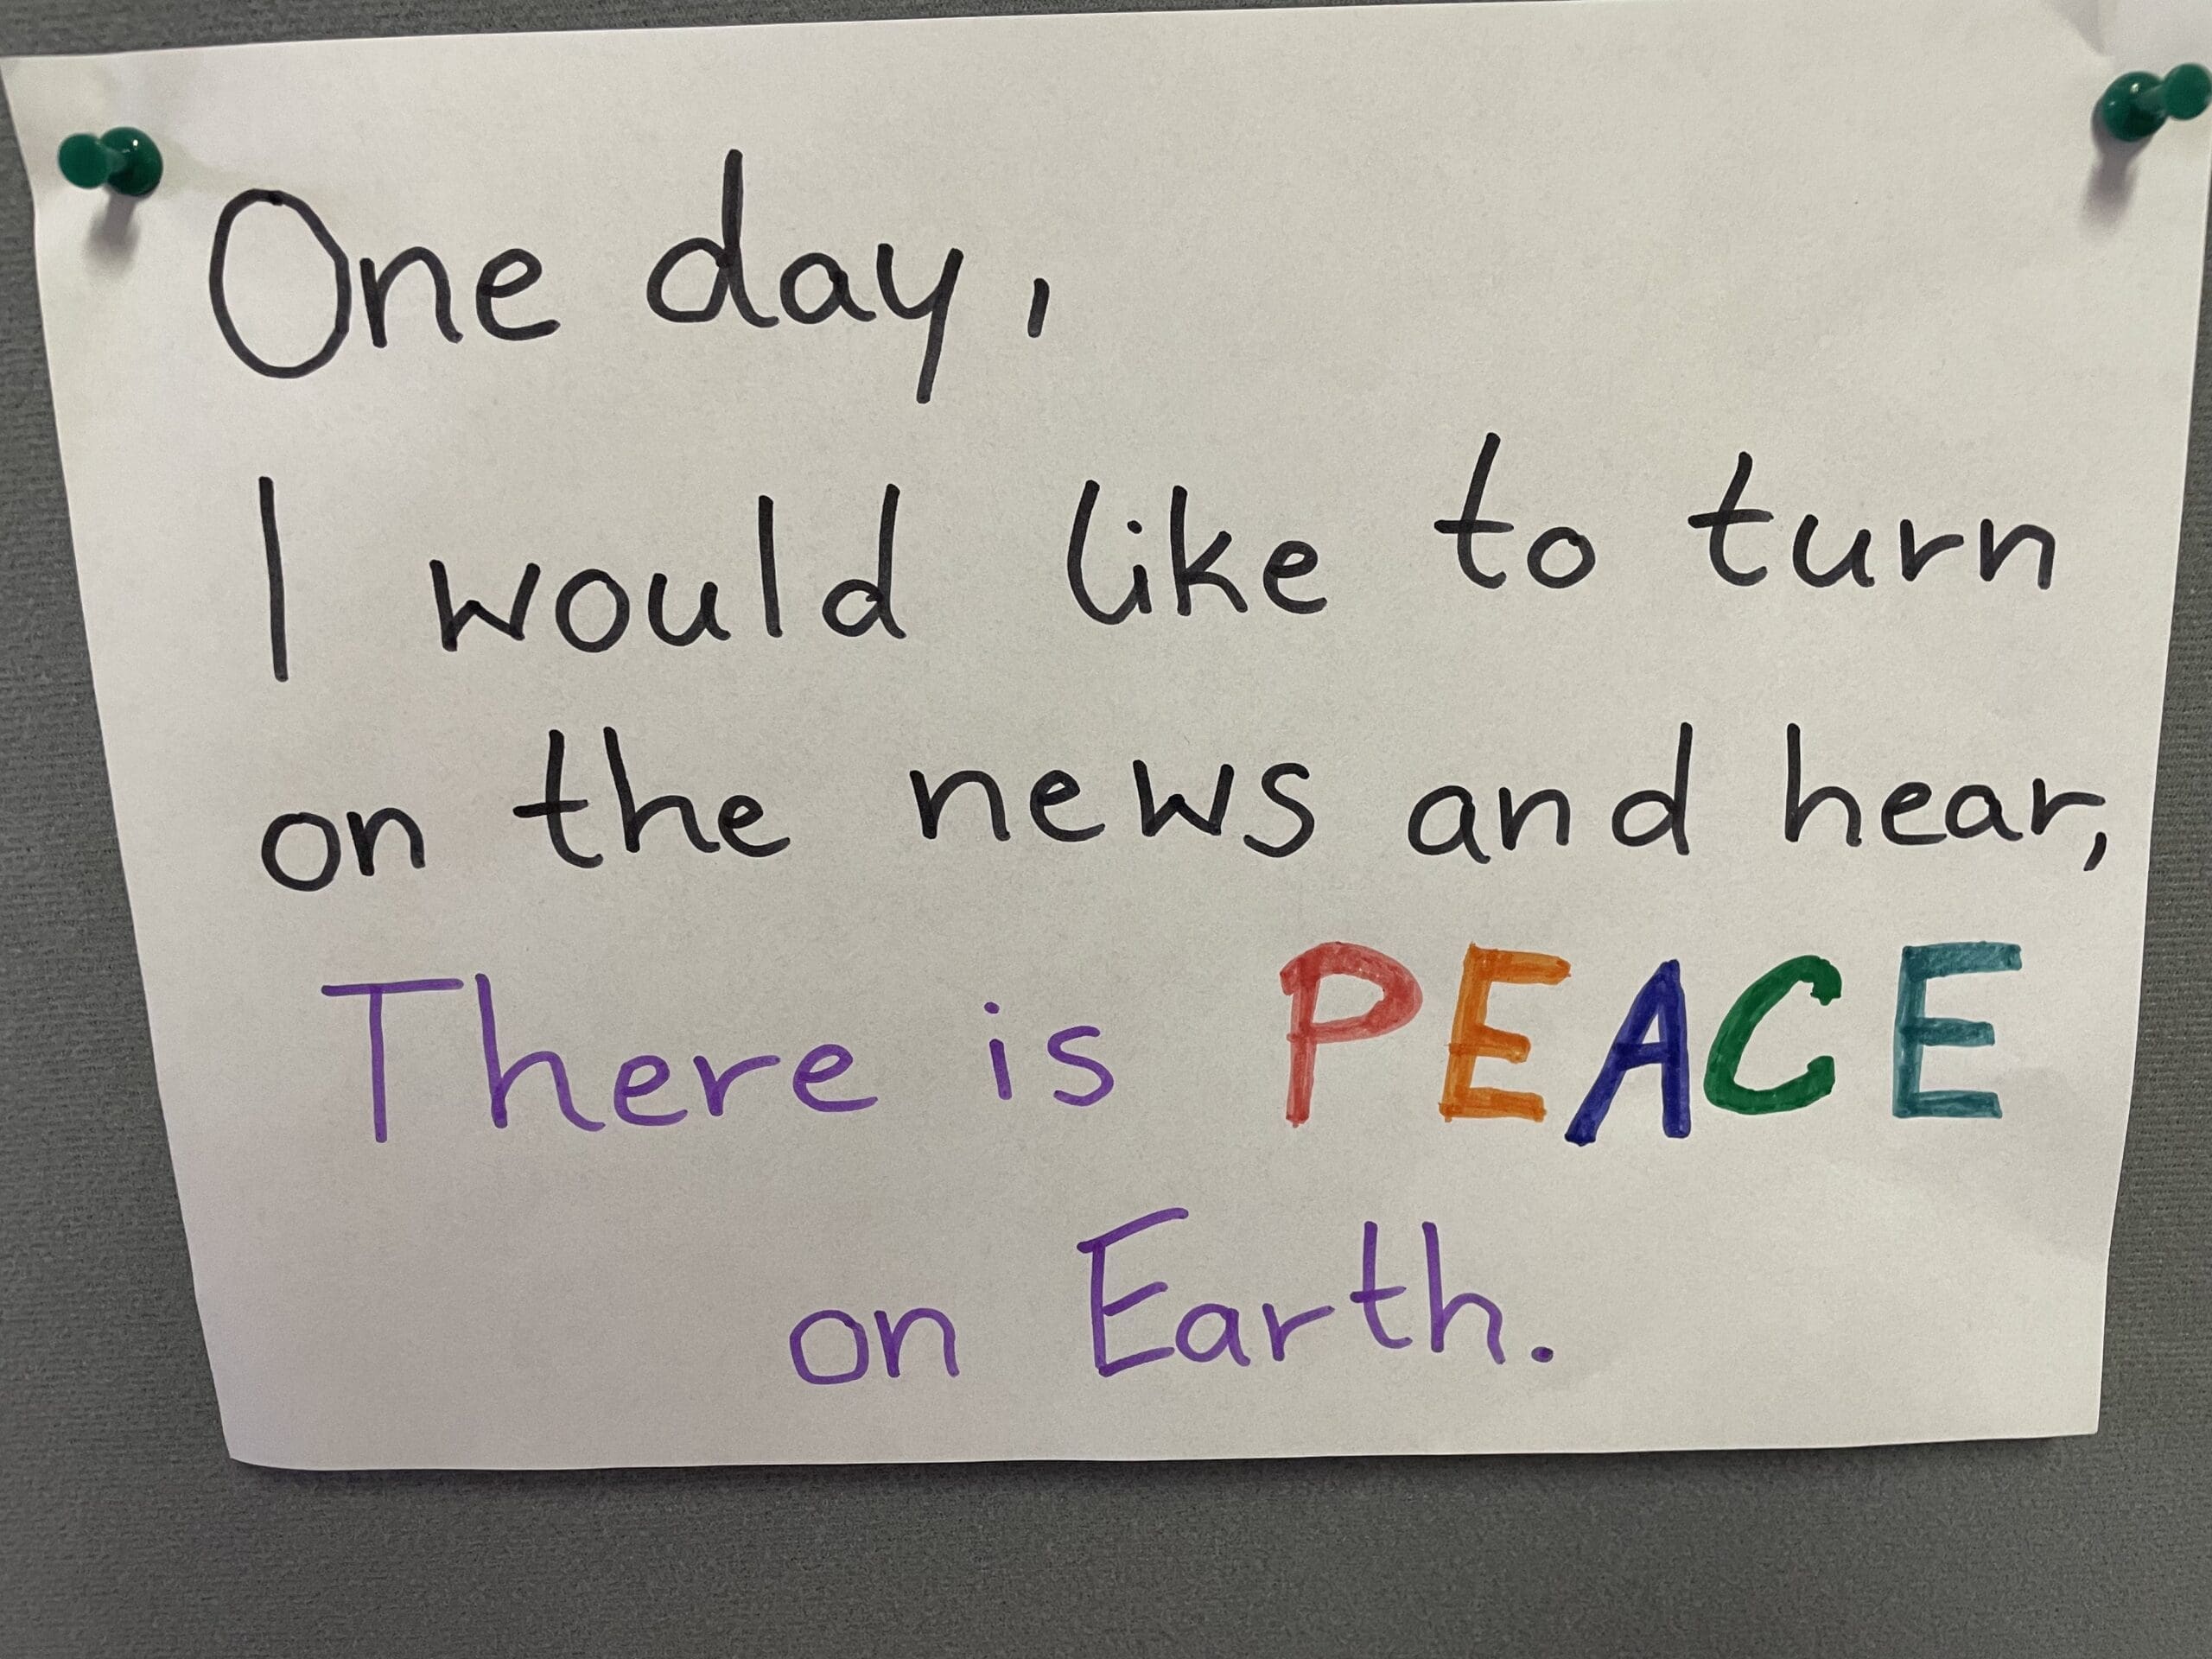 One day,
I would like to turn
on the news and hear,
There is PEACE
on Earth.